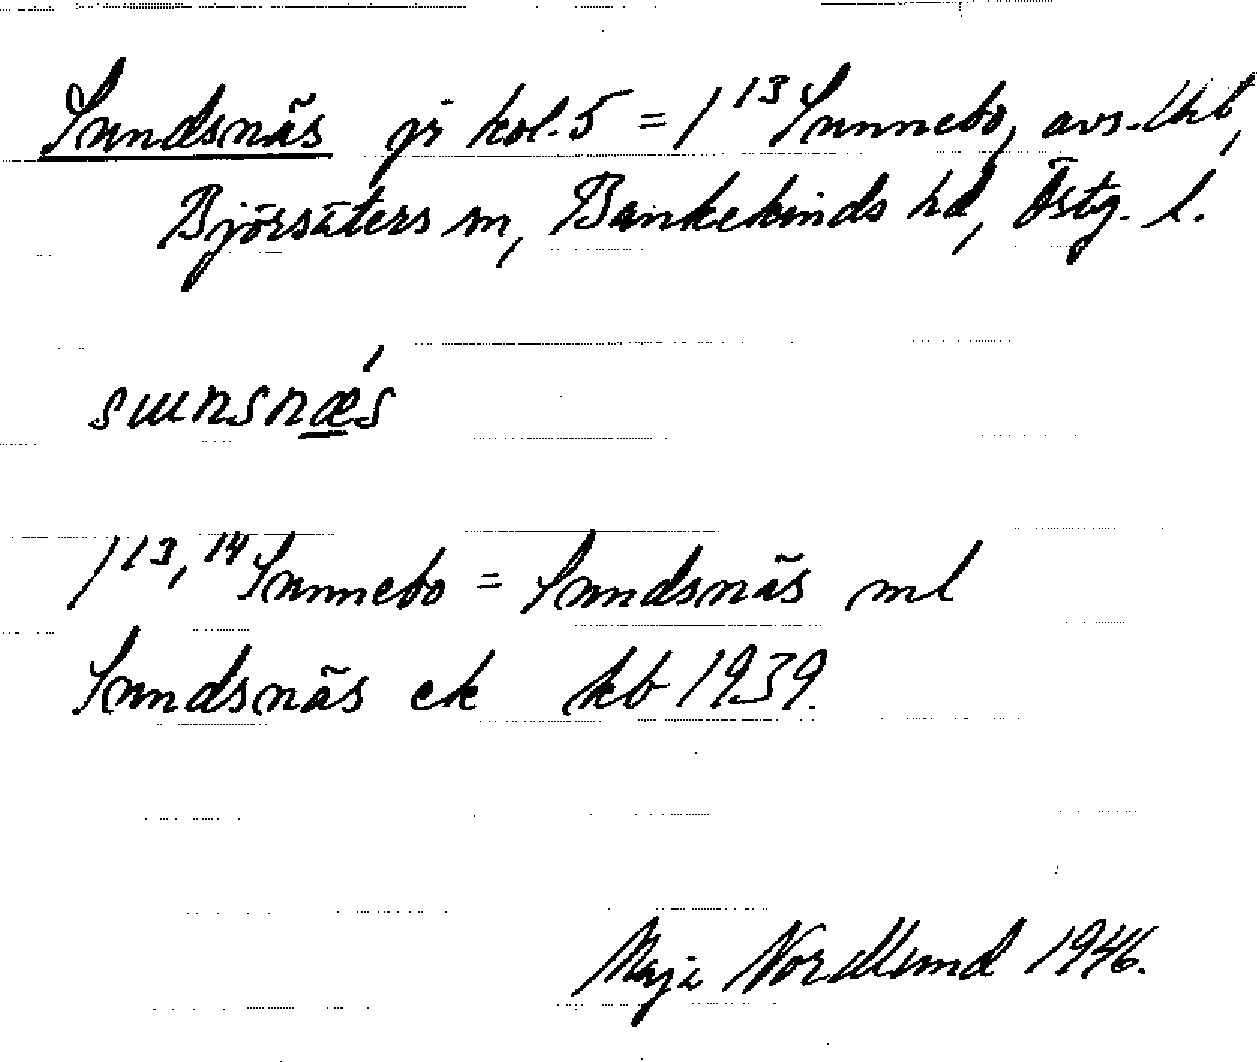 Sundsnäs gd kol. 5 = 1¹³ Sunnebo, avs. lht,
Björsäters sn, Bankekinds hd, Östg. l.
sɯnsnǽ̠s
1¹³,¹⁴ Sunnebo = Sundsnäs ml
Sundsnäs ek kb 1939.
Maja Nordlund 1946.